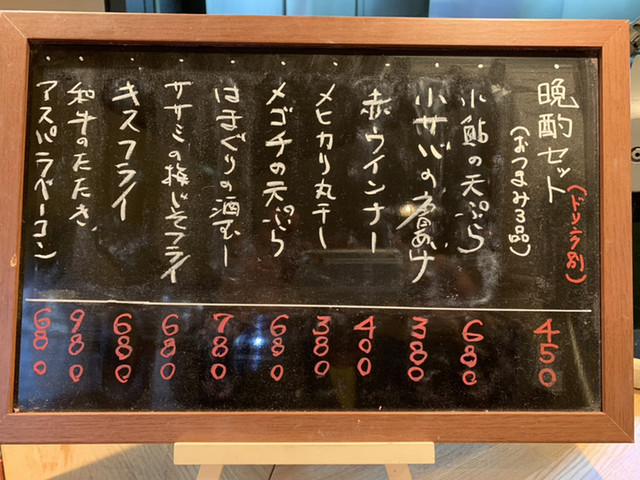 ・晩酌セット
(ドリンク別)
(おつまみ3品)
450
・小鮎の天ぷら
680
・小サバの唐あげ
380
・赤ウインナー
400
・メヒカリ丸干し
380
・メゴチの天ぷら
680
・はまぐりの酒むし
780
・ササミの梅じそフライ
680
・キスフライ
680
・和牛のたたき
980
・アスパラベーコン
680